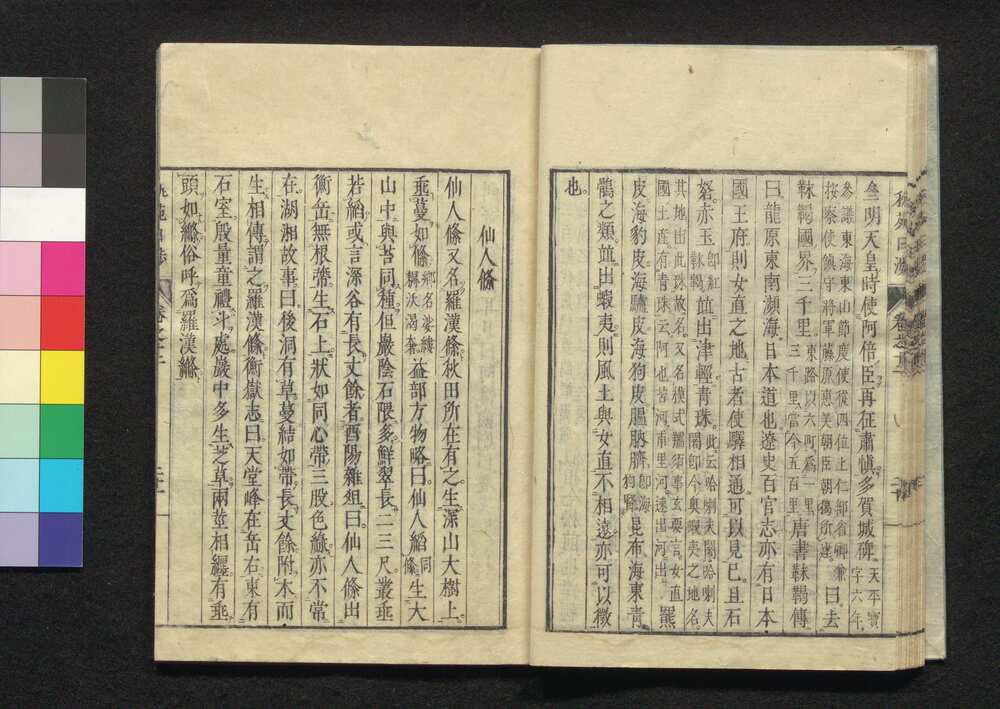 齊明天皇時使阿倍臣再征肅愼多賀城碑天平寶字六年
參議東海東山節度使從四位上仁部省卿兼按察使鎮守將軍藤原惠美朝臣朝獦所建曰去
靺鞨國界三千里東路以六町爲一里三千里當今五百里唐書靺鞨傳
曰龍原東南瀕海日本道也遼史百官志亦有日本
國王府則女直之地古者使驛相通可以見已且石
砮赤玉卽紅靺鞨竝出津輕靑珠此云
其地出此珠故名又名
國土產有靑珠云阿也苦河甫里河速出河出羆
皮海豹皮海驢皮海狗皮膃肭臍卽海狗腎昆布海東靑
鶻之類竝出蝦夷則風土與女直不相遠亦可以徵
也
仙人絛
仙人絛又名羅漢絛秋田所在有之生深山大樹上
垂蔓如絛鄉名娑縷益部方物略曰仙人縚同絛生大
山中與苔同種但巖陰石隈多鮮翠長二三尺叢垂
若縚或言深谷有長丈餘者酉陽雜俎曰仙人絛出
衡岳無根蔕生石上狀如同心帶三股色綠亦不常
在湖湘故事曰後洞有草蔓結如帶長丈餘附木而
生相傳謂之羅漢絛衡嶽志曰天堂峰在岳右東有
石室殷量童禮斗處巖中多生芝草兩莖相纒有垂
頭如絛俗呼爲羅漢絛